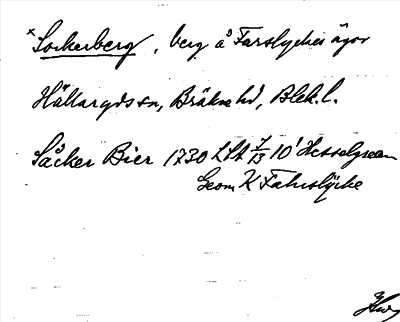 *Sockerberg, berg å Farslyckes ägor
Hällaryds sn, Bräkne hd, Blek. l.
Såcker Bier 1730 LSA 7/13 10' Hesselgreen
Geom K Fahrslycke